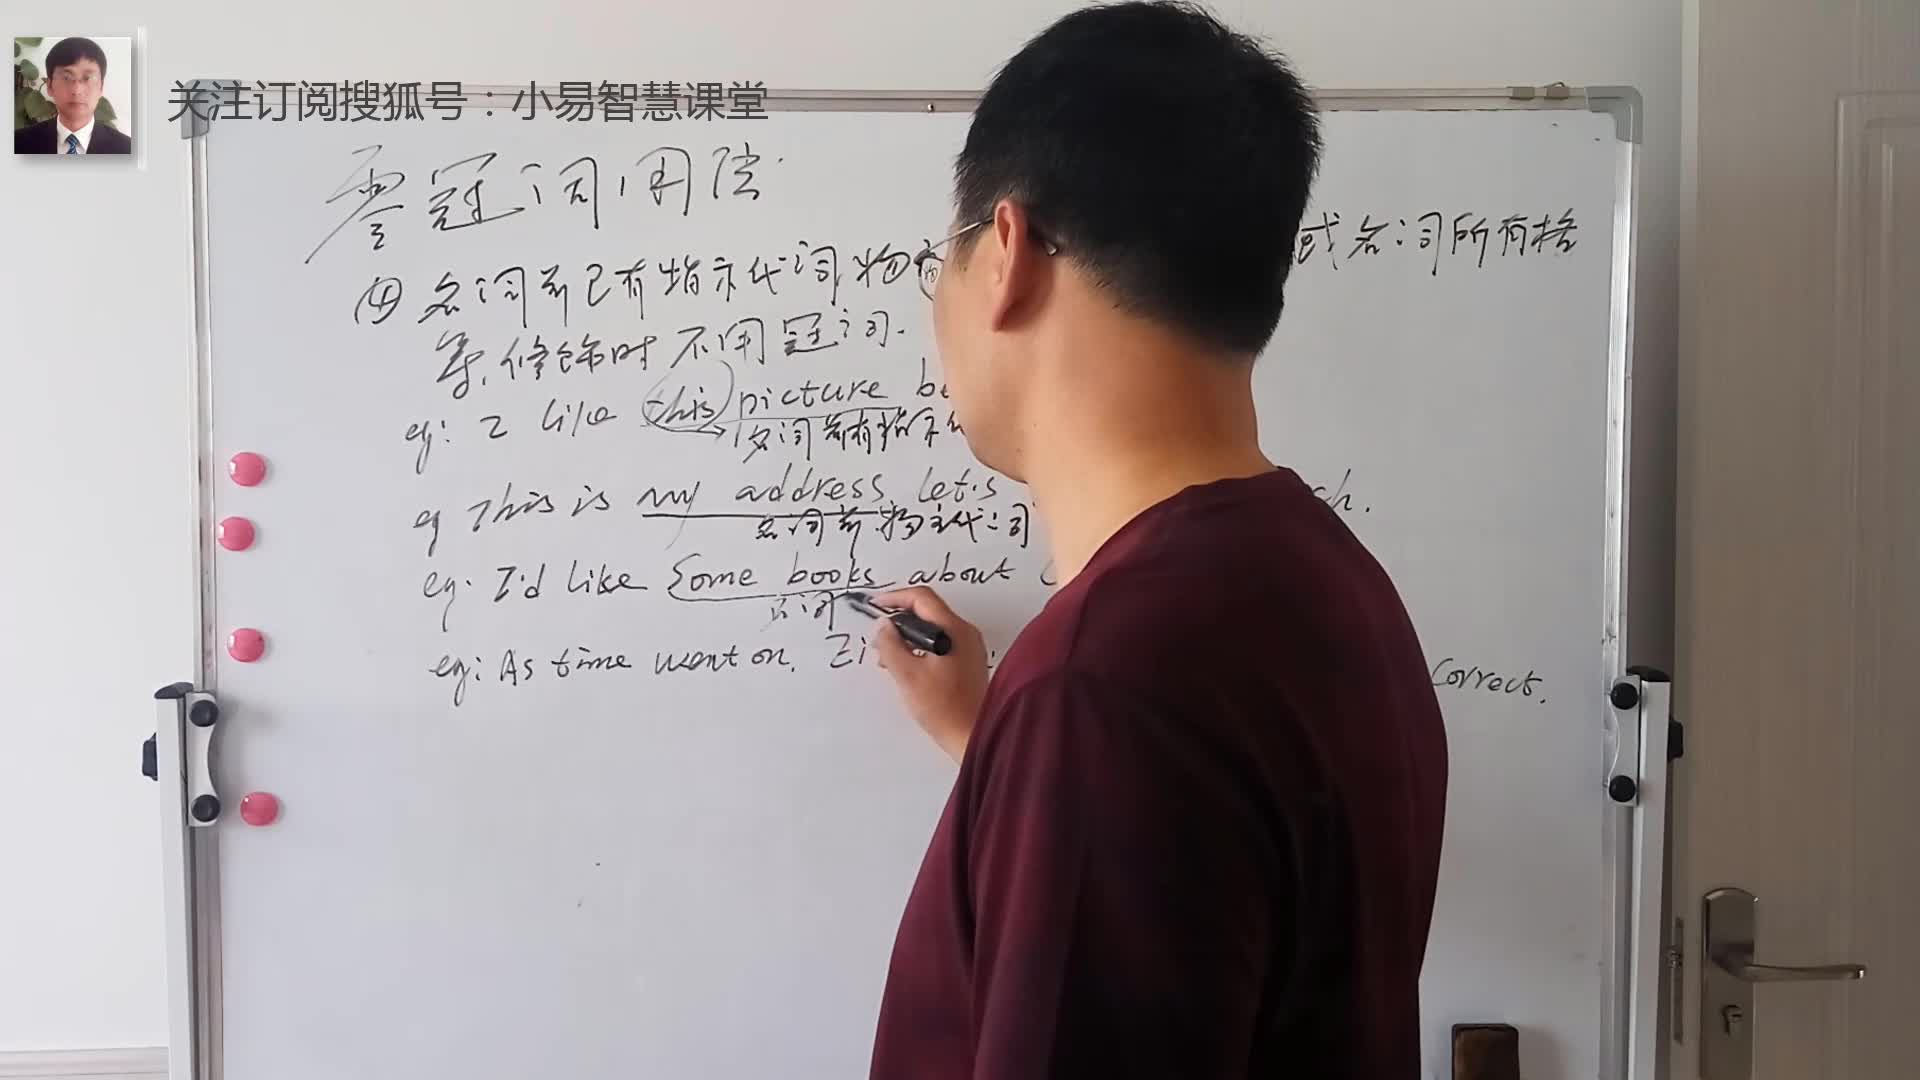 关注订阅搜狐号：小易智慧课堂
零冠词用法
④ 名词前已有指示代词 物 或名词所有格
等，修饰时不用冠词.
eg: I like this picture be
名词前有指示代
eg This is my address, let's ch.
名词前物主代词
eg. I'd like some books about
名词
eg: As time went on. Ei correct.